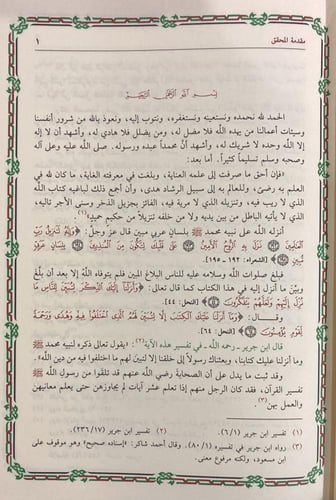 مقدمة المحقق ١
بسم الله الرحمن الرحيم
الحمد لله نحمده ونستعينه ونستغفره، ونتوب إليه، ونعوذ بالله من شرور أنفسنا
وسيئات أعمالنا من يهده الله فلا مضل له، ومن يضلل فلا هادي له، وأشهد أن لا إله
إلا الله وحده لا شريك له، وأشهد أنَّ محمداً عبده ورسوله. صلى الله عليه وعلى آله
وصحبه وسلم تسليماً كثيراً. أما بعد:
«فإن أحق ما صرفت إلى علمه العناية، وبلغت في معرفته الغاية، ما كان لله في
العلم به رضىً، وللعالم به إلى سبيل الرشاد هدى، وأن أجمع ذلك لباغيه كتاب الله
الذي لا ريب فيه، وتنزيله الذي لا مرية فيه، الفائز بجزيل الذخر وسنى الأجر تاليه،
الذي لا يأتيه الباطل من بين يديه ولا من خلفه تنزيلاً من حكيمٍ حميدٍ»(١).
أنزله الله على نبيه محمد ﷺ بلسانٍ عربي مبين قال عزَّ وجلَّ: ﴿وَإِنَّهُ لَتَنزِيلُ رَبِّ
الْعَالَمِينَ ۝ نَزَلَ بِهِ الرُّوحُ الْأَمِينُ ۝ عَلَى قَلْبِكَ لِتَكُونَ مِنَ الْمُنذِرِينَ ۝ بِلِسَانٍ عَرَبِيٍّ
مُّبِينٍ﴾ [الشعراء: ١٩٢ ـ ١٩٥].
فبلغ صلوات الله وسلامه عليه للناس البلاغ المبين فلم يتوفاه الله إلا بعد أن بلَّغ
وبيَّن ما أنزل إليه في هذا الكتاب كما قال تعالى: ﴿وَأَنزَلْنَا إِلَيْكَ الذِّكْرَ لِتُبَيِّنَ لِلنَّاسِ مَا
نُزِّلَ إِلَيْهِمْ وَلَعَلَّهُمْ يَتَفَكَّرُونَ﴾ [النحل: ٤٤].
وقـــال: ﴿وَمَا أَنزَلْنَا عَلَيْكَ الْكِتَابَ إِلَّا لِتُبَيِّنَ لَهُمُ الَّذِي اخْتَلَفُوا فِيهِ وَهُدًى وَرَحْمَةً
لِّقَوْمٍ يُؤْمِنُونَ﴾ [النحل: ٦٤].
قال ابن جرير ـ رحمه الله ـ في تفسير هذه الآية(٢): «يقول تعالى ذكره لنبيه محمد ﷺ
وما أنزلنا عليك كتابنا، وبعثناك رسولاً إلى خلقنا إلا لتبين لهم ما اختلفوا فيه من دين الله».
وقد ثبت ما يدل على أن الصحابة رضي الله عنهم قد تلقوا من رسول الله ﷺ
تفسير القرآن، فقد كان الرجل منهم إذا تعلم عشر آيات لم يجاوزهن حتى يعلم معانيهن
والعمل بهن(٣).
(١) تفسير ابن جرير (٦/١). (٢) تفسير ابن جرير (٢٣٦/١٧).
(٣) رواه ابن جرير في تفسيره (٨٠/١). وقال أحمد شاكر: «إسناده صحيح» وهو موقوف على
ابن مسعود، ولكنه مرفوع معنى.